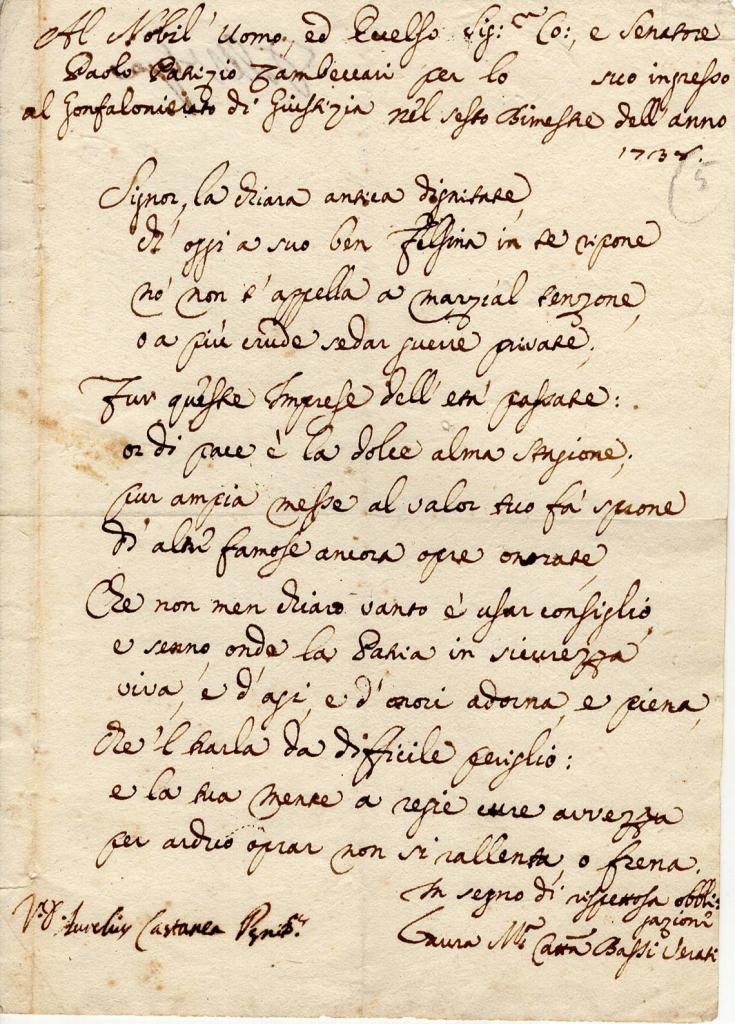 Al Nobil' Uomo, ed Excelso Sig:re Co:, e Senatore
Paolo Patrizio Zambeccari per lo suo ingresso
al Gonfalonierato di Giustizia nel sesto Bimestre dell'anno
5
Signor, la chiara antica dignitate,
ch' oggi a suo ben Felsina in te ripone
nò non t'appella a marzial tenzone,
o a più crude sedar guerre private;
Fur queste Imprese dell' età passate:
or di pace è la dolce alma stagione;
pur ampia messe al valor tuo fà sprone
d'altre famose ancora opre onorate,
Che non men chiaro vanto è usar consiglio,
e senno, onde la Patria in sicurezza
viva, e d'agi, e d'onori adorna, e piena,
Che 'l trarla da difficile periglio:
e la tua Mente a regie cure avvezza
per arduo oprar non si rallenta, o frena.
In segno di rispettosa obbli-
gazione
Laura Ma. Cattna Bassi Verati
Vd: Aurelius Castanea